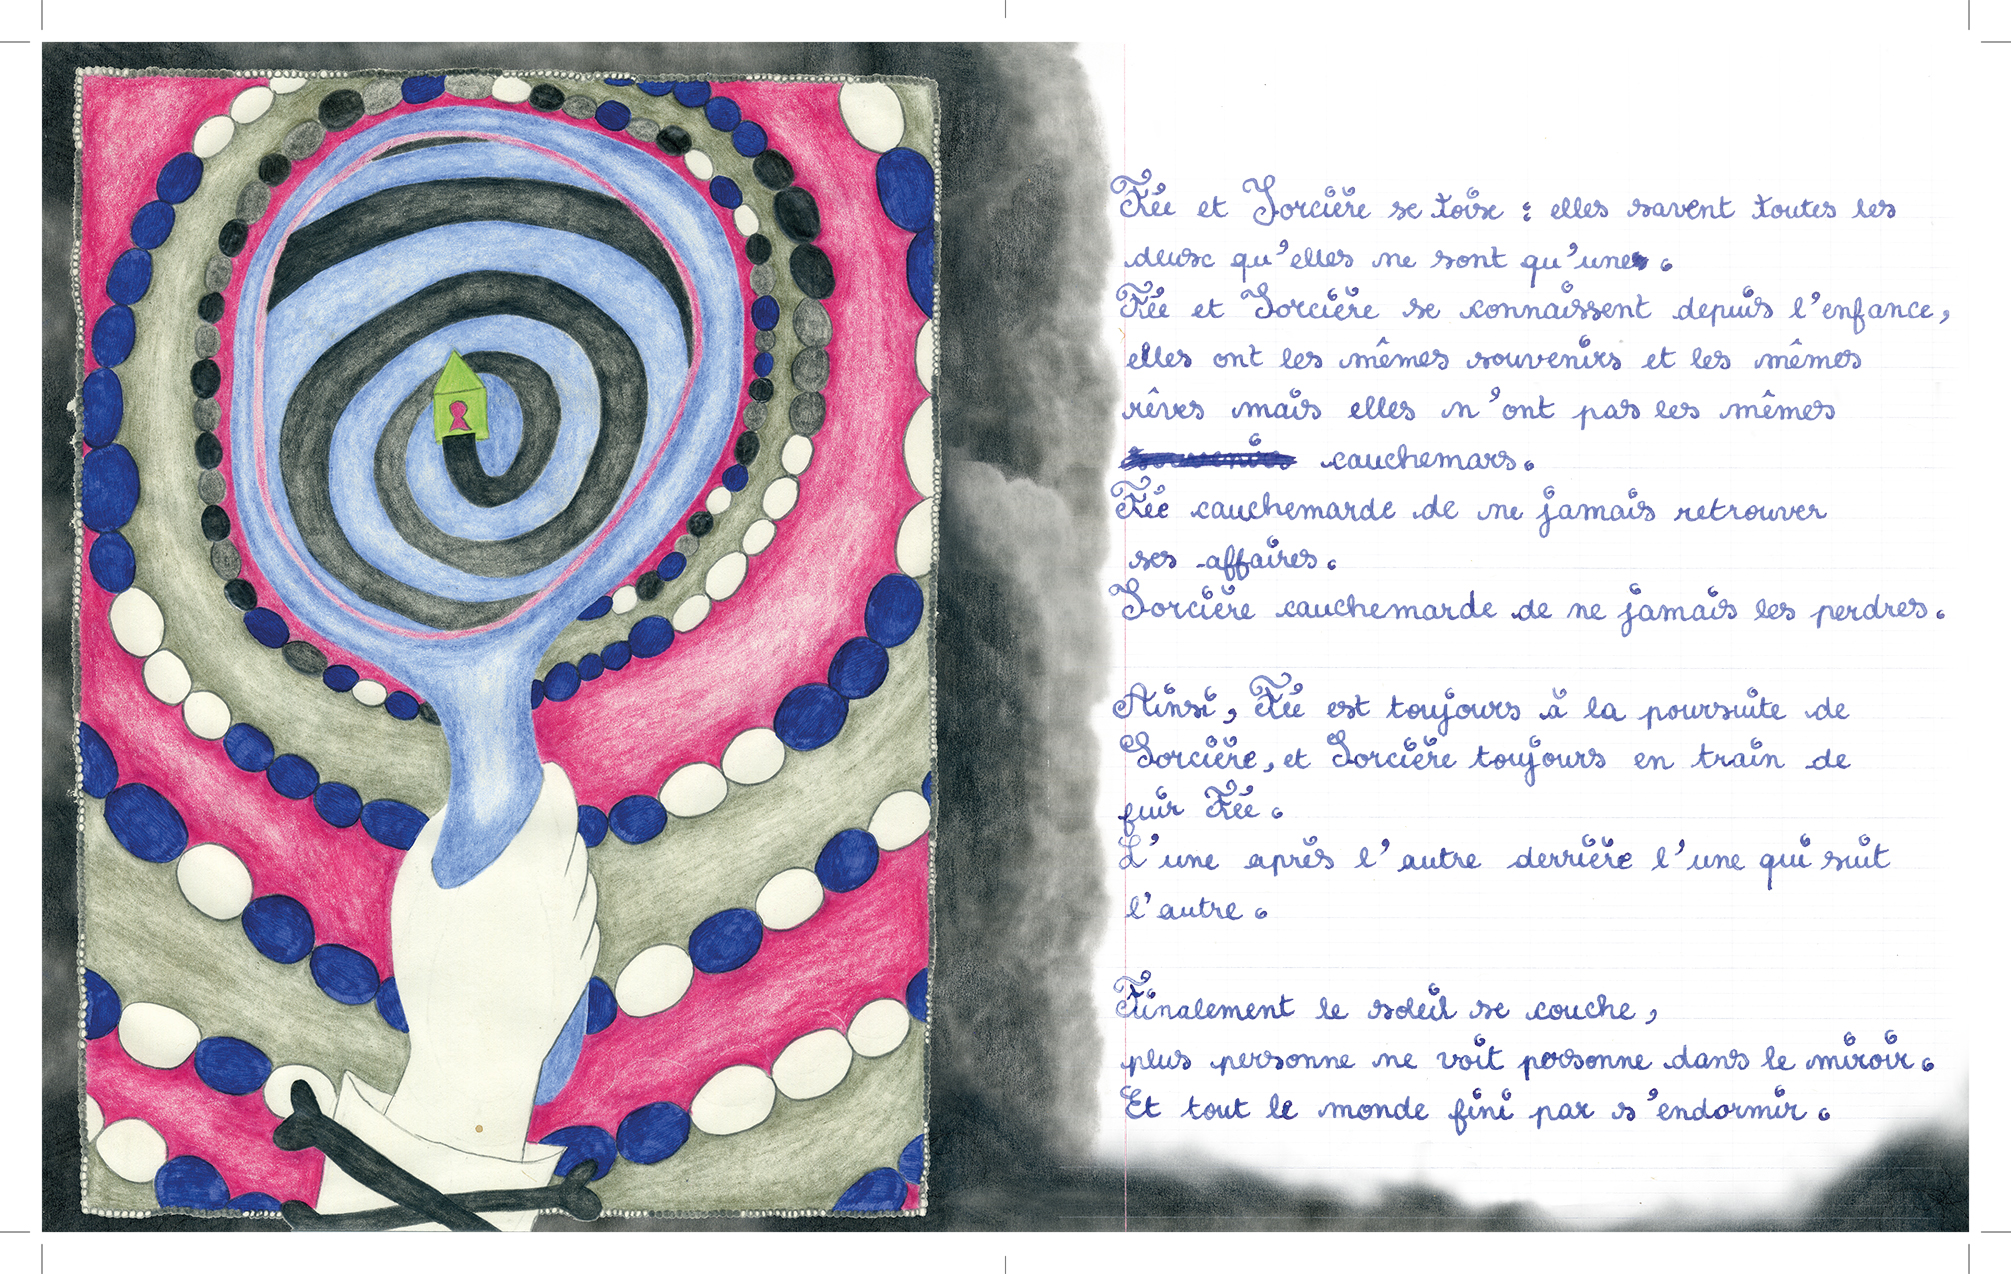 Fée et Sorcière se toise : elles savent toutes les
deux qu'elles ne sont qu'une.
Fée et Sorcière se connaissent depuis l'enfance,
elles ont les mêmes souvenirs et les mêmes
rêves mais elles n'ont pas les mêmes
cauchemars.
Fée cauchemarde de ne jamais retrouver
ses affaires.
Sorcière cauchemarde de ne jamais les perdres.
Ainsi, Fée est toujours à la poursuite de
Sorcière, et Sorcière toujours en train de
fuir Fée.
L'une après l'autre derrière l'une qui suit
l'autre.
Finalement le soleil se couche,
plus personne ne voit personne dans le miroir.
Et tout le monde fini par s'endormir.